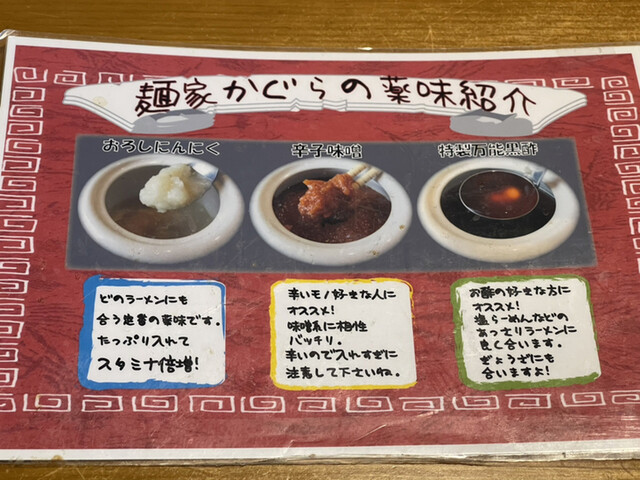 麺家かぐらの薬味紹介
おろしにんにく
辛子味噌
特製万能黒酢
どのラーメンにも
合う定番の薬味です。
たっぷり入れて
スタミナ倍増!
辛いモノ好きな人に
オススメ!
味噌系に相性
バッチリ。
辛いので入れすぎに
注意して下さいね。
お酢の好きな方に
オススメ!
塩らーめんなどの
あっさりラーメンに
良く合います。
ぎょうざにも
合いますよ!